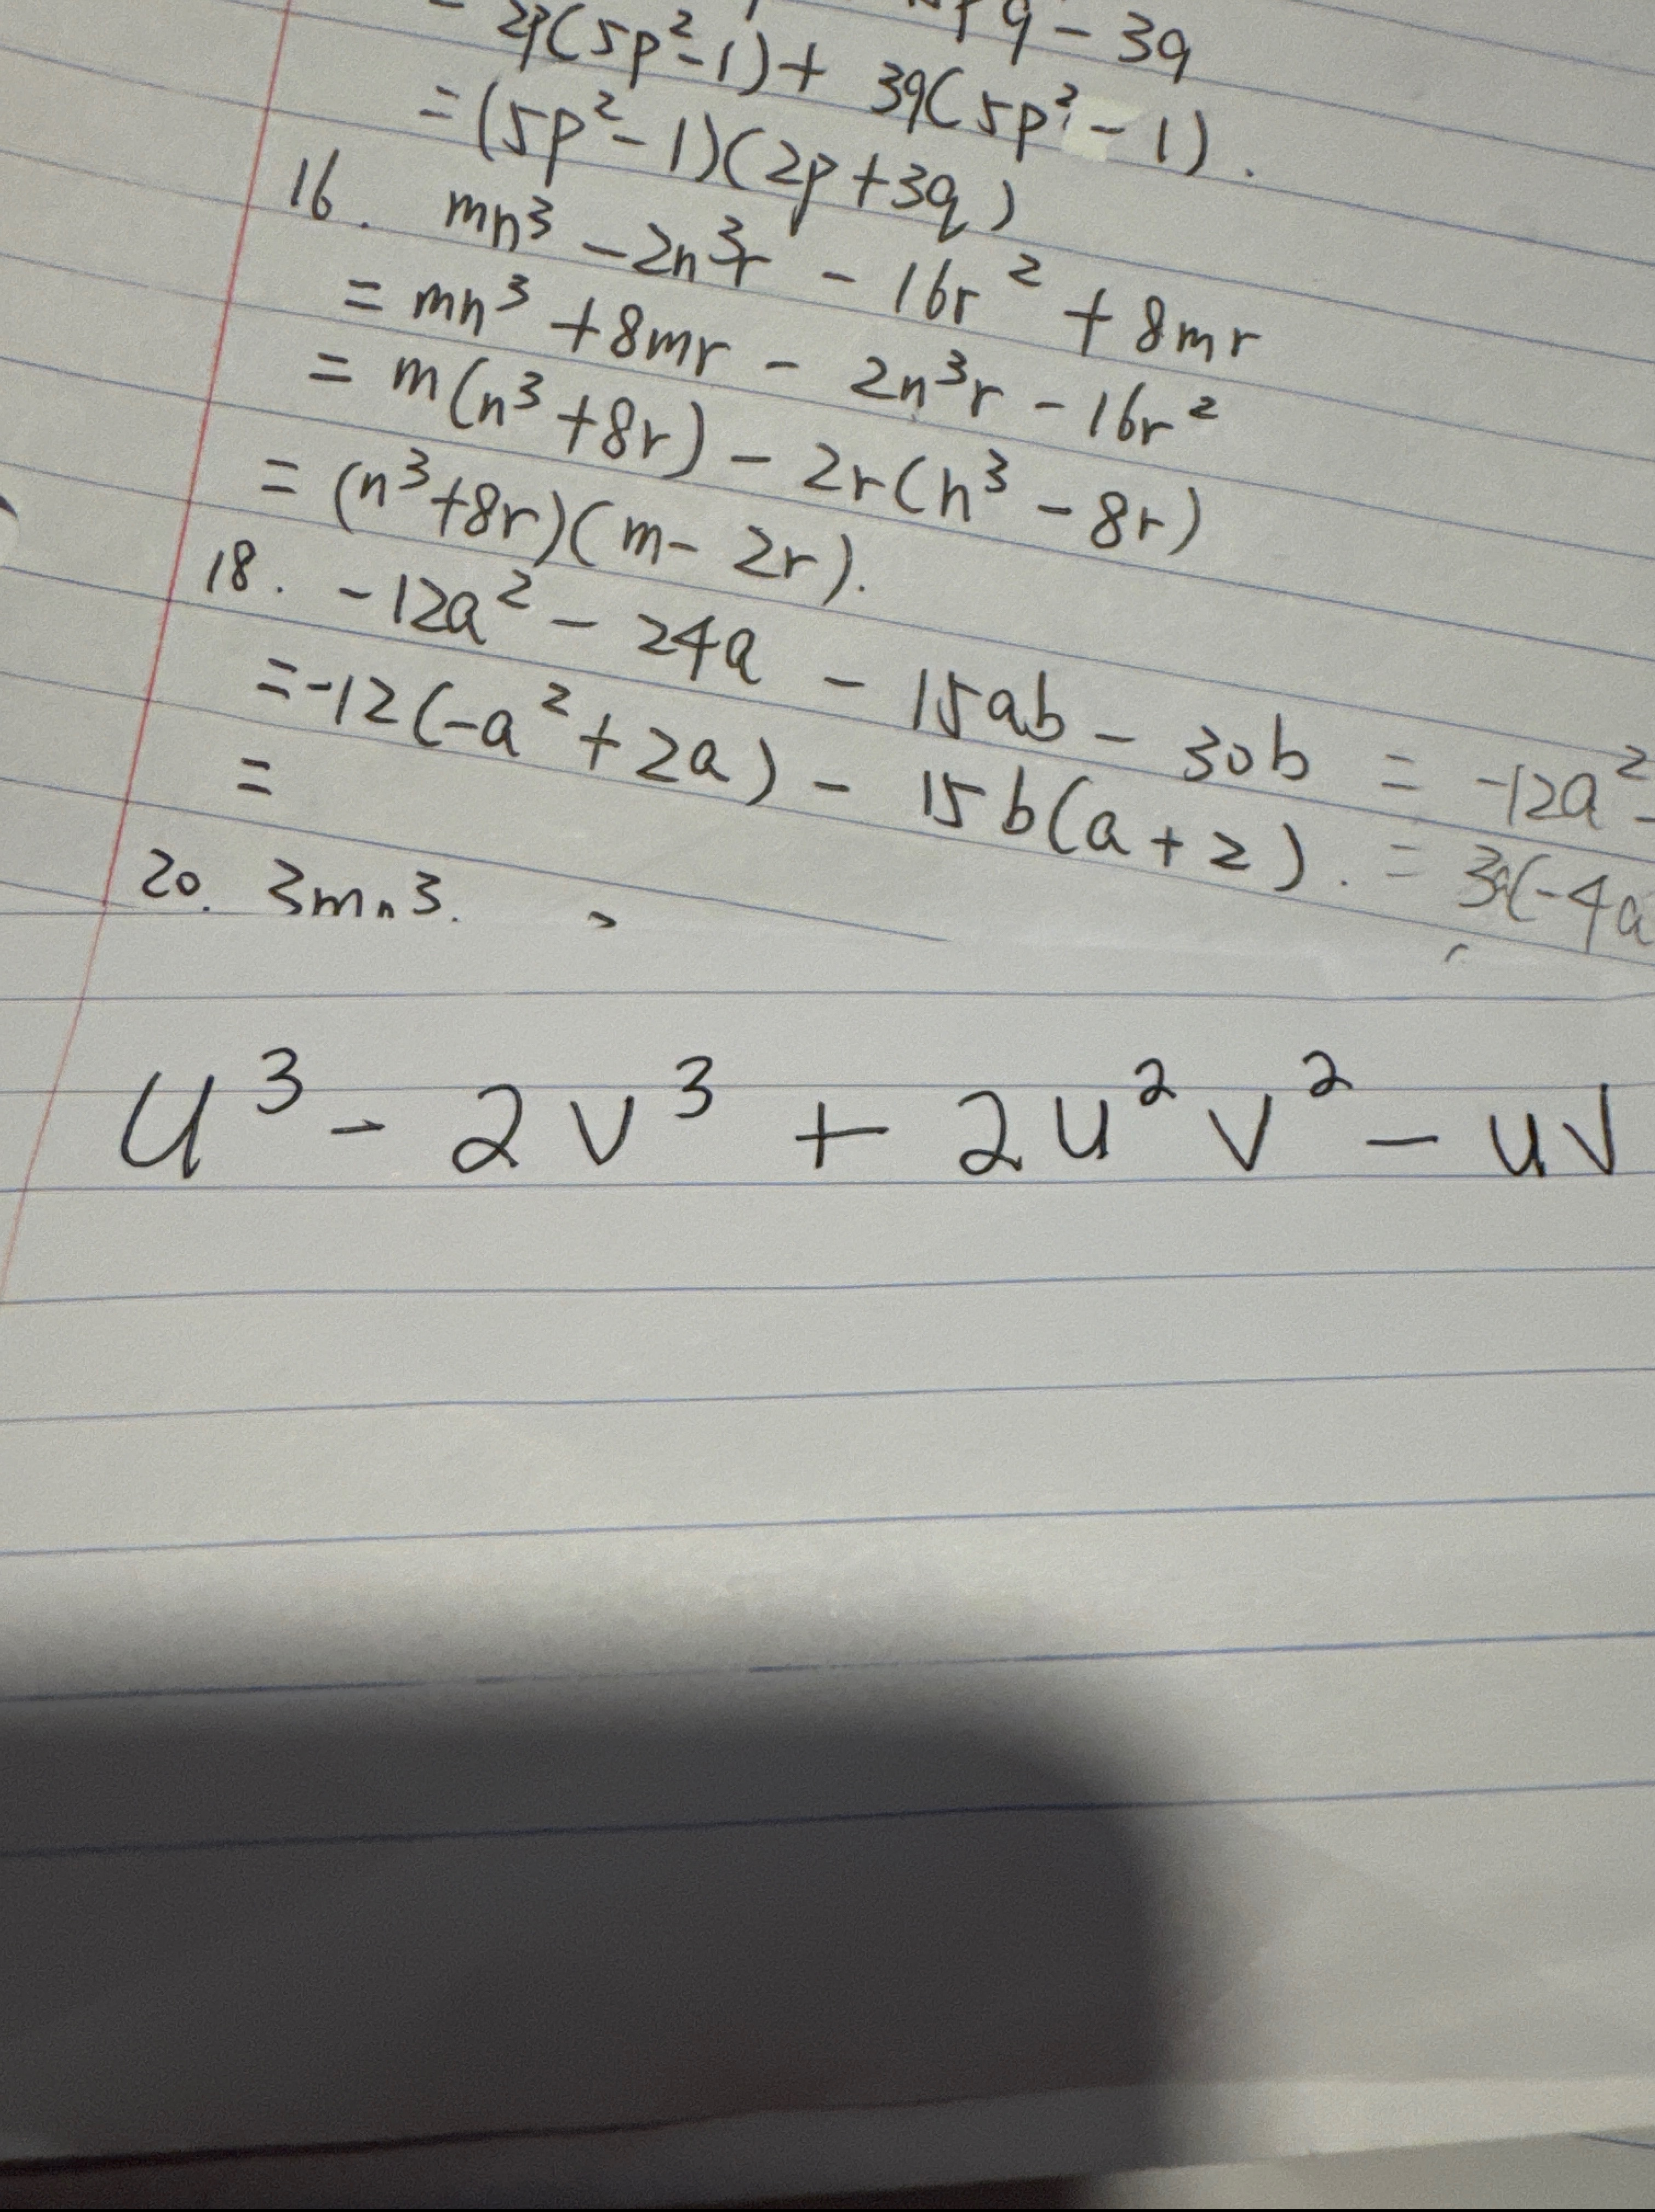 2p(5p²-1) + 3q(5p²-1).
=(5p²-1)(2p+3q)
16. mn³ - 2n³r - 16r² + 8mr
= mn³ + 8mr - 2n³r - 16r²
= m(n³+8r) - 2r(n³-8r)
= (n³+8r)(m-2r).
18. -12a² - 24a - 15ab - 30b = -12a² -
=-12(-a²+2a) - 15b(a+2). = 3a(-4a
=
20. 3mn3.
u³ - 2v³ + 2u²v² - uv